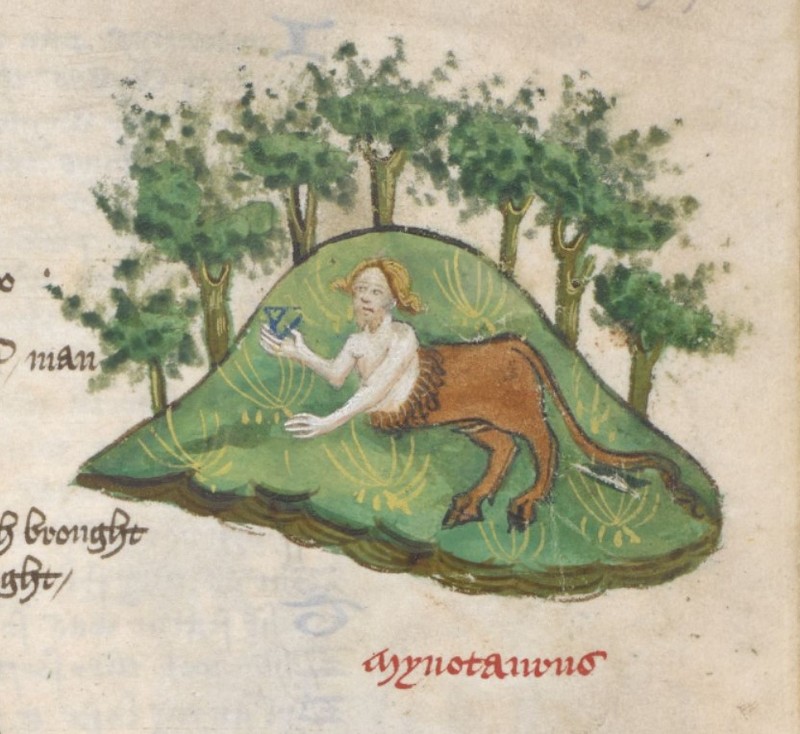 man
h brought
ght/
Mynotaurus